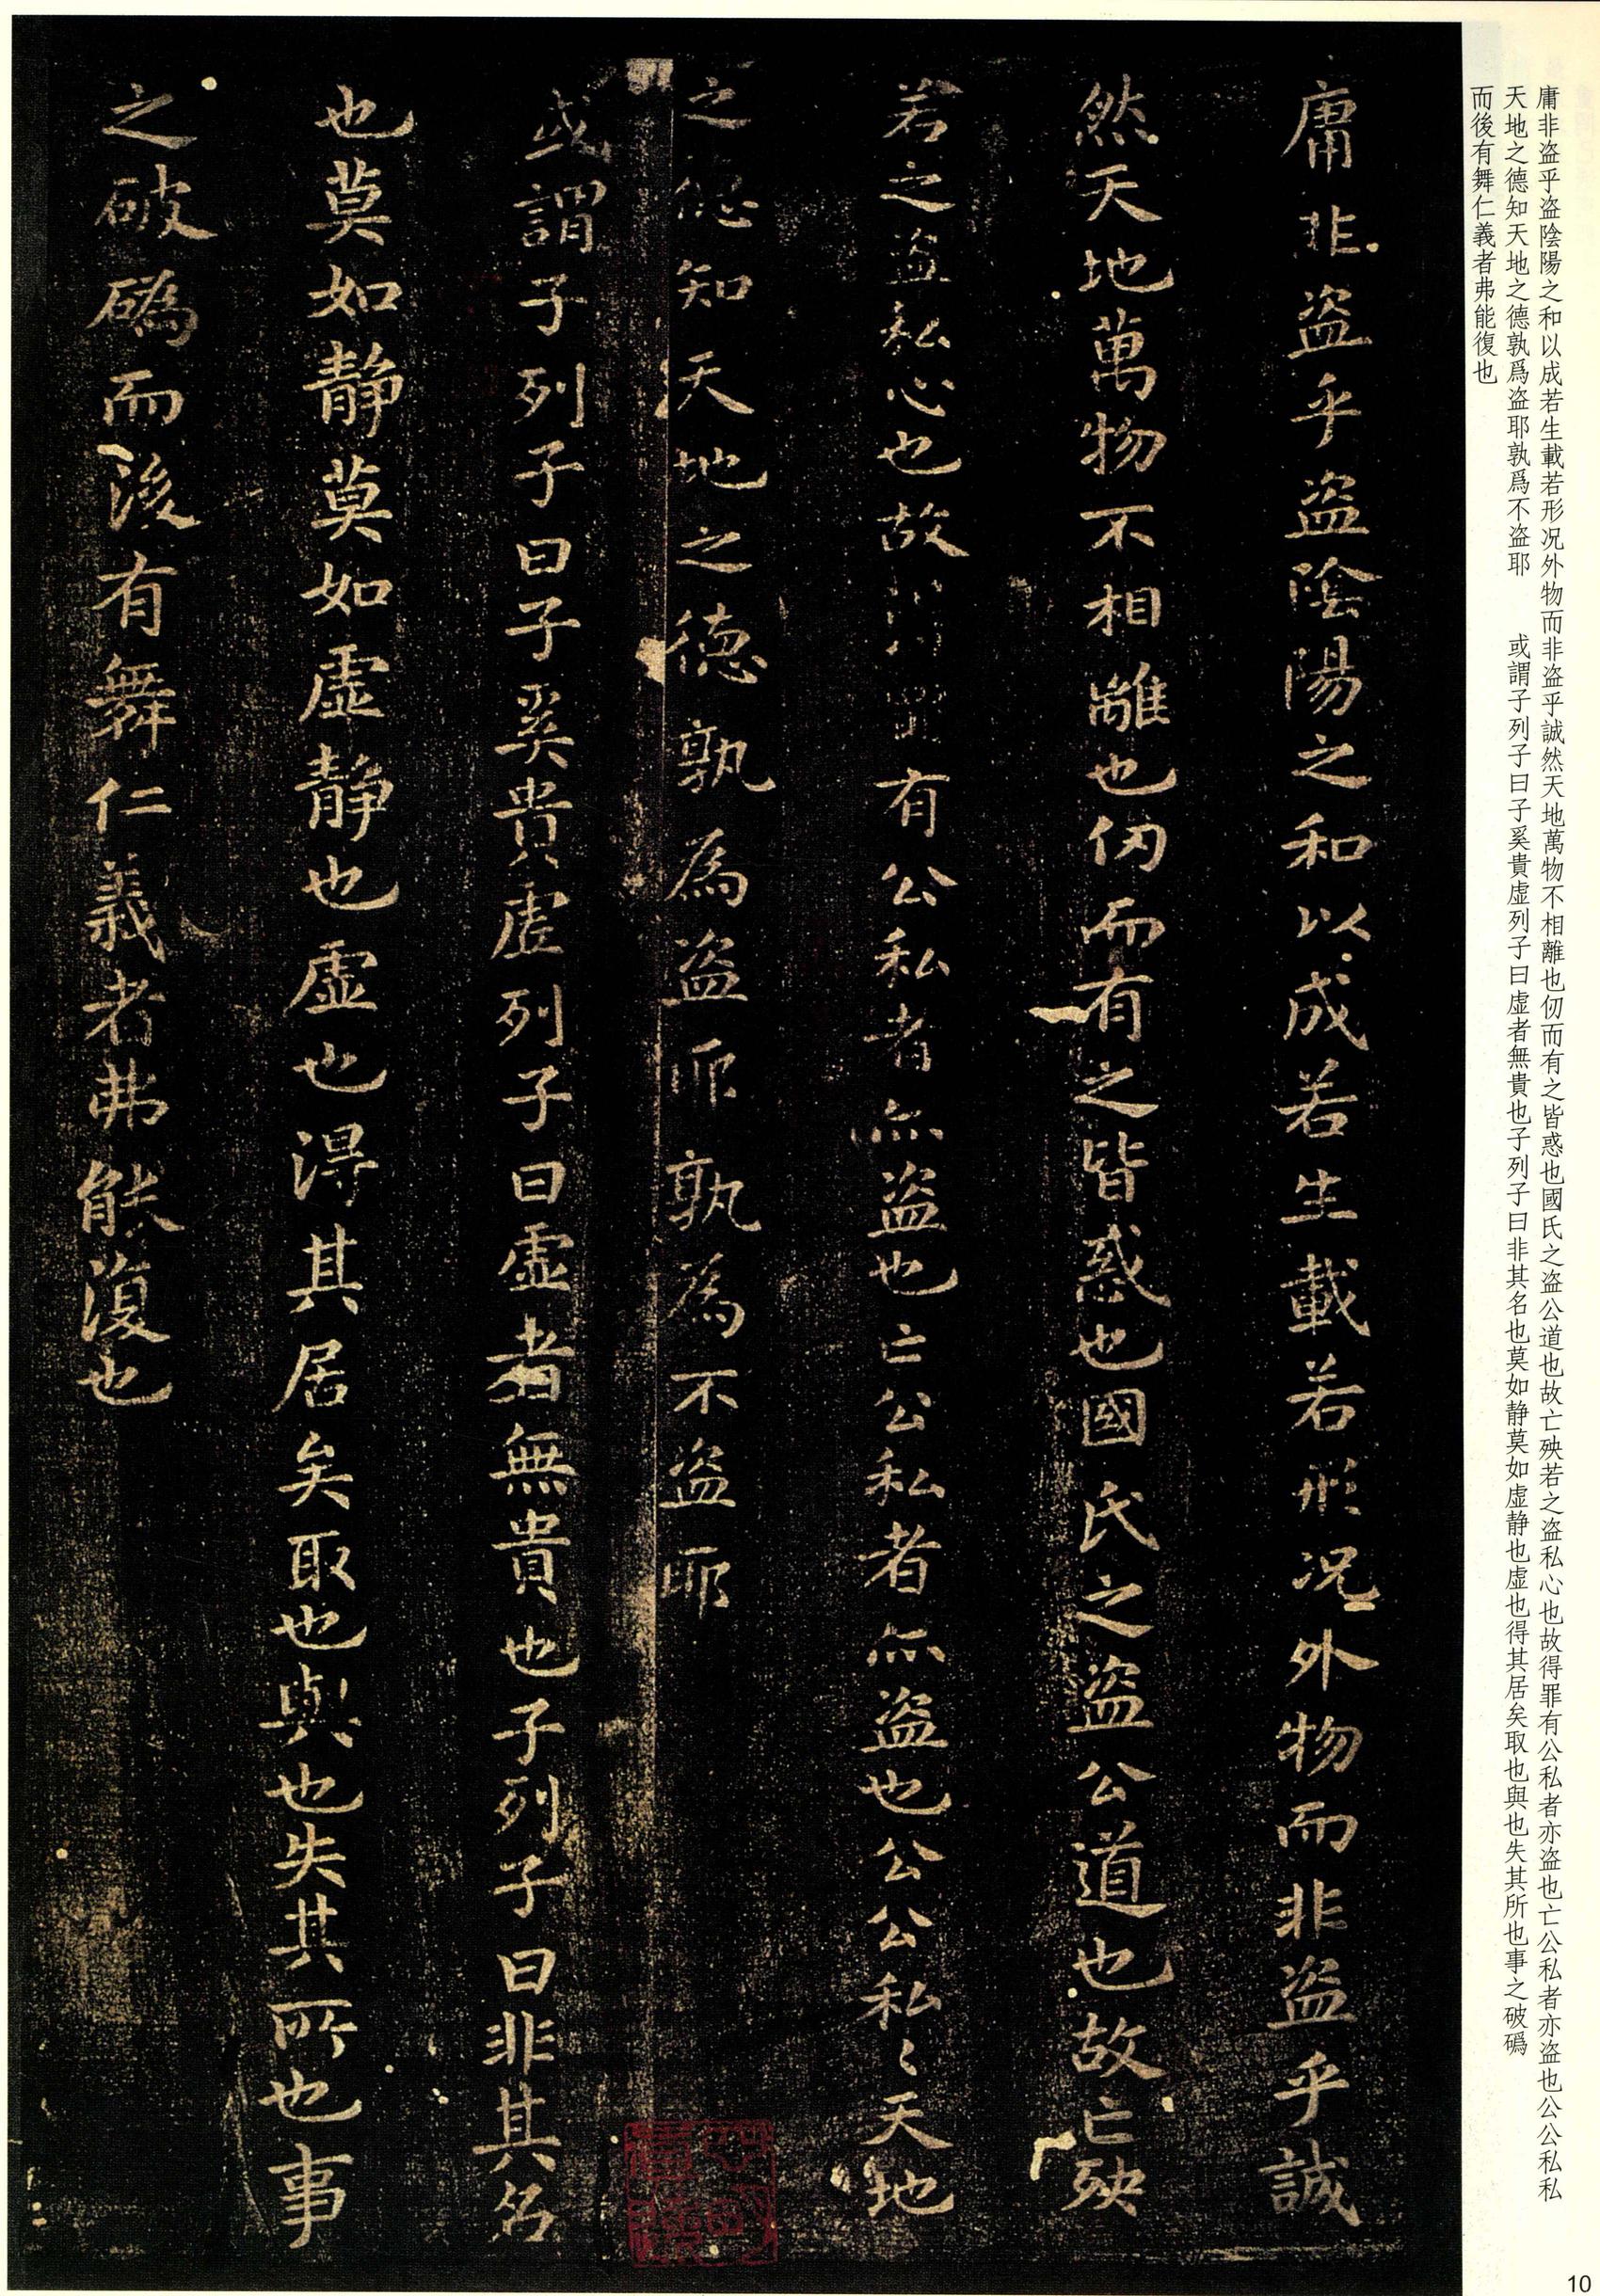 庸非盜乎盜陰陽之和以成若生載若形况外物而非盜乎誠然天地萬物不相離也仞而有之皆惑也國氏之盜公道也故亡殃若之盜私心也故得罪有公私者亦盜也亡公私者亦盜也公公私私
天地之德知天地之德孰爲盜耶孰爲不盜耶　或謂子列子曰子奚貴虛列子曰虛者無貴也子列子曰非其名也莫如静莫如虛静也虛也得其居矣取也與也失其所也事之破䃣
而後有舞仁義者弗能復也
庸非盜乎盜陰陽之和以成若生載若形况外物而非盜乎誠
然天地萬物不相離也仞而有之皆惑也國氏之盜公道也故亡殃
若之盜私心也故得罪有公私者亦盜也亡公私者亦盜也公公私〻天地
之德知天地之德孰為盜耶孰為不盜耶
或謂子列子曰子奚貴虛列子曰虛者無貴也子列子曰非其名
也莫如静莫如虛静也虛也得其居矣取也與也失其所也事
之破䃣而後有舞仁義者弗能復也
10